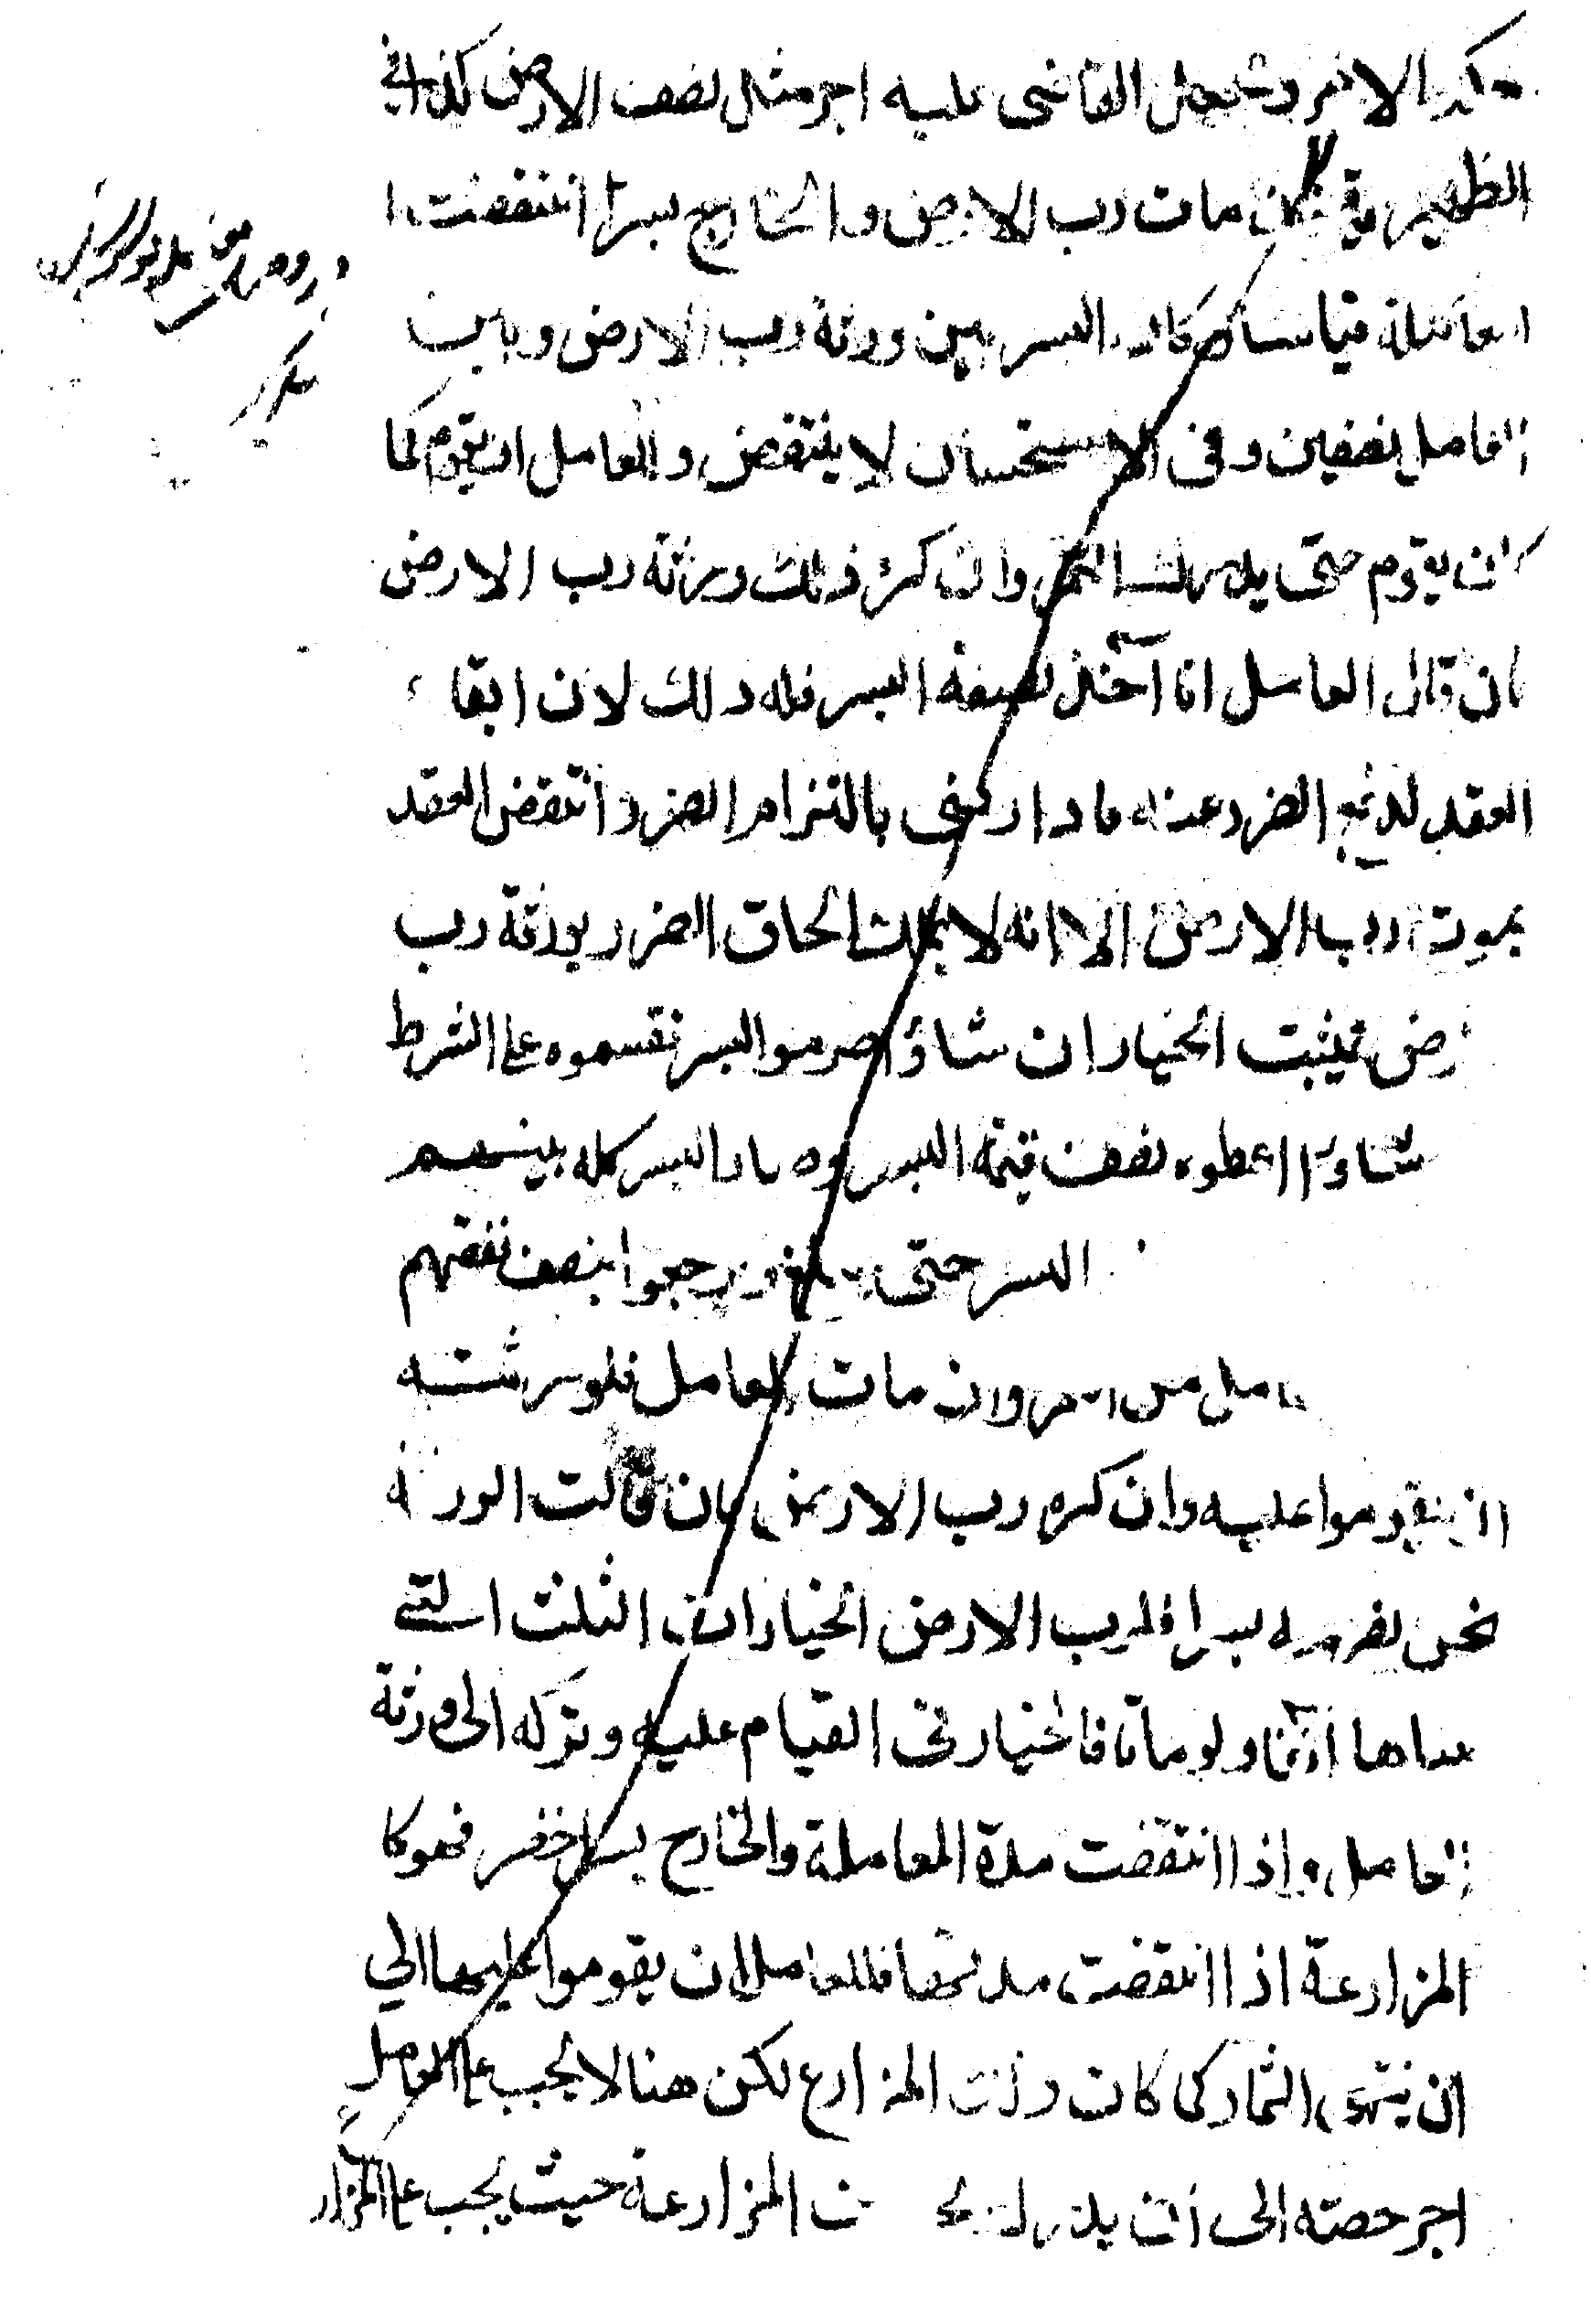 الامر ويجعل القاضى عليه اجر مثل نصف الارض كذا في
الظهيرية مات رب الارض والخارج بسرا انتقضت ا
المعاملة قياسا وكان البسر بين ورثة رب الارض وبين
العامل نصفين وفى الاستحسان لا ينتقض وللعامل ان يقوم كما
كان يقوم حتى يدرك الثمر وان كره ذلك ورثة رب الارض
فان قال العامل انا آخذ نصف البسر فله ذلك لان ابقاء
العقد لدفع الضرر عنه فاذا رضى بالتزام الضرر انتقض العقد
بموت رب الارض الا انه لا يملك الحاق الضرر بورثة رب
الارض فيثبت الخيار ان شاؤا صرموا البسر فقسموه على الشرط
شاؤا اعطوه نصف قيمة البسر وصار البسر كله بينهم
البسر حتى يبلغ ويرجعوا بنصف نفقتهم
وان مات العامل فلورثته
ان يقوموا عليه وان كره رب الارض فان قالت الورثة
نحن نصرمه بسرا فلرب الارض الخيارات الثلث التى
ولو ماتا فالخيار فى القيام عليه وتركه الى ورثة
العامل واذا انتقضت مدة المعاملة والخارج بسر اخضر فهو كا
المزارعة اذا انتقضت مدتها فللعامل ان يقوموا عليها الي
ان ينتهى الثمار كى كانت المزارع لكن هنا لا يجب على العامل
اجر حصته الى ان يدرك المزارعة حيث يجب على المزار